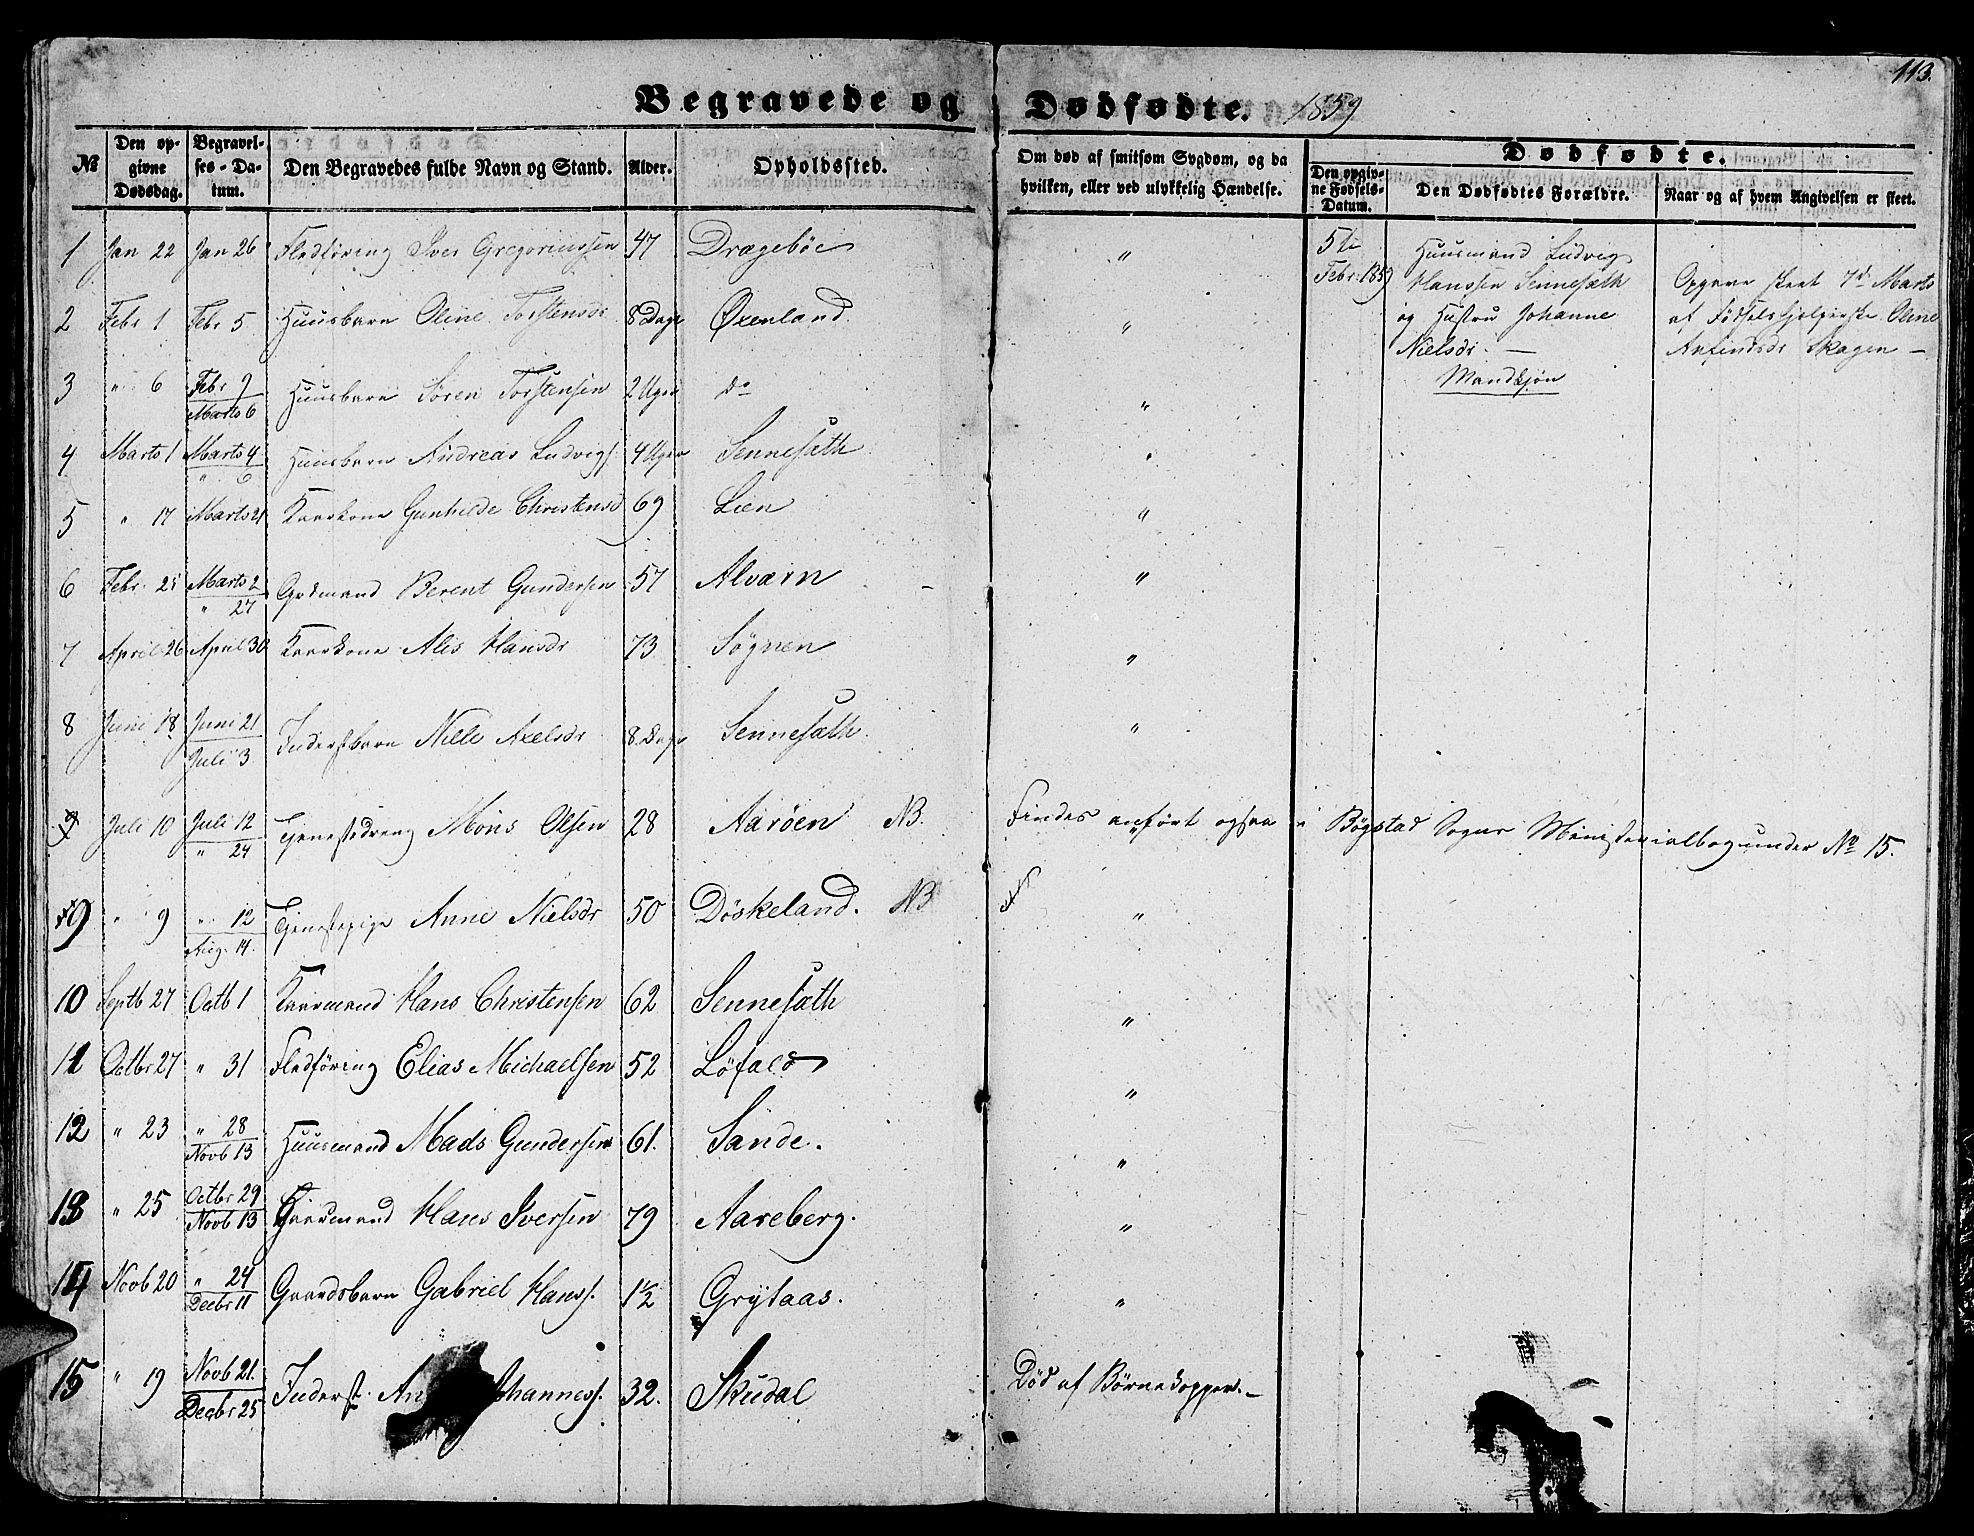 113.
Begravede og Dødfødte. 1859
№ Den opgivne Dødsdag. Begravelses-Datum. Den Begravedes fulde Navn og Stand. Alder. Opholdssted. Om død af smitsom Sygdom, og da hvilken, eller ved ulykkelig Hændelse. Dødfødte. Den opgivne Fødsels-Datum. Den Dødfødtes Forældre. Naar og af hvem Angivelsen er skeet.
1 Jan 22 Jan 26 Fledføring Iver Gregoriussen 47 Drægebøe "
2 Febr 1 Febr 5 Huusbarn Oline Torstensdr 8 Dage Øxenland "
3 " 6 Febr 9 Marts 6 Huusbarn Søren Torstensen 2 Uger do "
4 Marts 1 Marts 4 " 6 Huusbarn Andreas Ludvigs. 4 Uger Sennesæth "
5 " 17 Marts 21 Kaarkone Gunhilde Christensd 69 Lien "
6 Febr. 25 Marts 2 " 27 Grdmand Berent Gundersen 57 Alværn "
7 April 26 April 30 Kaarkone Ales Hansdr 73 Søgnen "
8 Juni 18 Juni 21 Juli 3 Inderstbarn Nille Axelsdr 8 Dage Sennesæth "
9 Juli 10 Juli 12 " 24 Tjenestedreng Mons Olsen 28 Aarøen NB. Findes anført ogsaa i Bøgstad Sogns Ministerialbog under No 15.
9 " 9 " 12 Aug. 14. Tjenestepige Anne Nielsdr 50 Døskeland. NB "
10 Septb 27 Octb 1 Kaarmand Hans Christensen 62 Sennesæth "
11 Octbr 27 " 31 Fledføring Elias Michaelsen 52 Løfald "
12 " 23 " 28 Novb 13 Huusmand Mads Gundersen 61. Sande. "
13 " 25 Octbr 29 Novb 13 Kaarmand Hans Iversen 79 Aareberg. "
14 Novb 20 " 24 Decbr 11 Gaardsbarn Gabriel Hanss. 1½ Grytaas. "
15 " 19 Novb 21. Decbr 25 Inderst. An Johanness. 32. Skudal Død af Børnekopper. —
5te Febr: 1859
Huusmand Ludvig
Hanssen Sennesæth
og Hustru Johanne
Nielsdr. —
Mandkjøn
Opgave skeet 7de Marts
af Fødselshjelperske Oline
Anfindsdr Skagen —